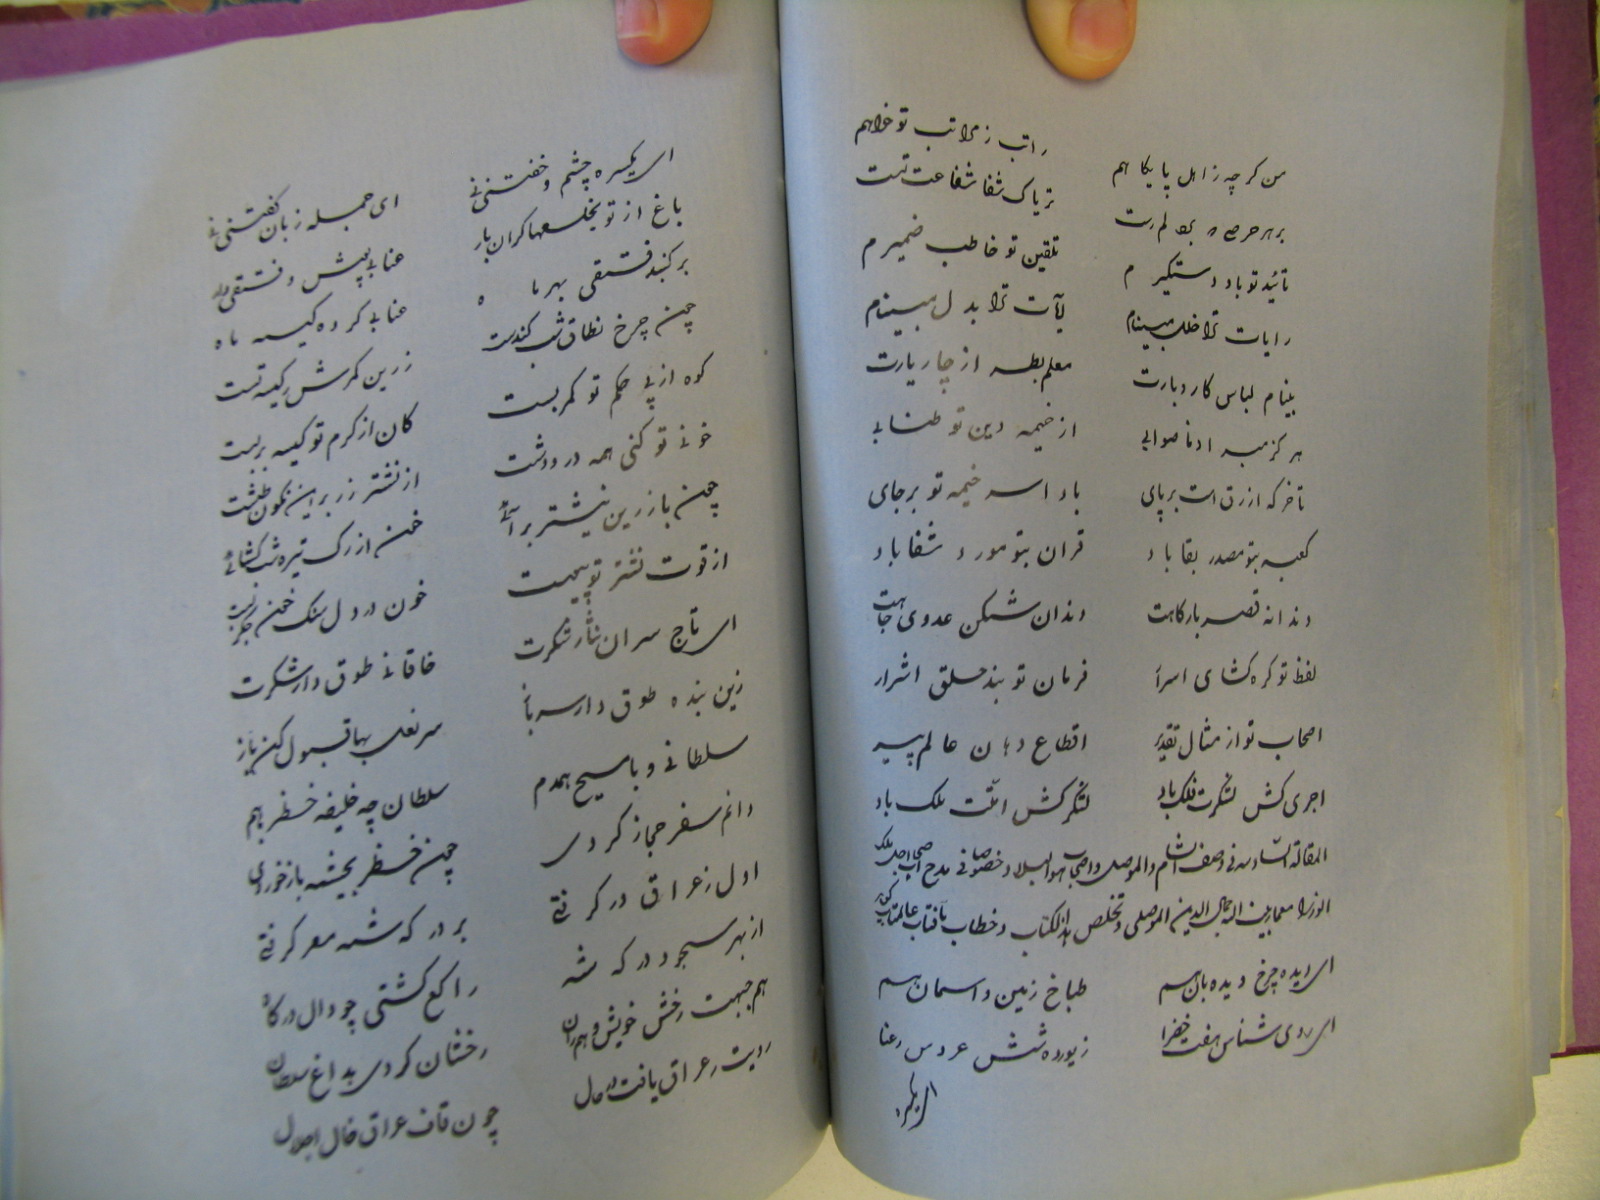 من کرچه ز اهل پایکا هم راتب ز مراتب تو خواهم
بر هر حرصی تریاک شفا شفاعت تست
تائید تو باد دستگیر م تلقین تو خاطب ضمیر م
رایات ترا خلل مبینام لآیات ترا بدل مبینام
بینام لباس کاروبارت معلم بطه از چار یارت
هرگز مبه ادنا صوابی از خیمه دین تو طنابی
تا خرکه ازرق است برپای باد اسه خیمه تو برجای
کعبه بتو مصدر بقا باد قران بتو مورد شفا باد
دندانه قصر بارکاهت دندان شکن عدوی جاهت
لفظ تو کره کشای اسرار فرمان تو بند حلق اشرار
اصحاب تو از مثال تقدیر اقطاع دهان عالم پیر
اجری کش لشکرت فلک باد لشکر کش امتت ملک باد
المقالة السادسه فی وصف الشام والموصل و خصوصا فی مدح
الوزرا جمال الدین الموصلی و تخلص هذا الکتاب و خطاب بآفتاب عالمتاب
ای دیده چرخ و دیده بان هم طباخ زمین و اسمان هم
ای روی شناس هفت خضرا زیورده شش عروس رعنا
ای یکسره
ای یکسره چشم و خفتنی نی ای جمله زبان کفتنی نی
باغ از تو بخلعها کران بار عنابی پوش و فستقی دار
بر کنبد فستقی بهر ماه عنابی کرده کیسه ماه
چون چرخ نطاق شب کندست زرین کمرش رکیه تست
کوه از پی حکم تو کمر بست کان از کرم تو کیسه بربست
خونی تو کنی همه در ودشت از نشتر زر برین نکون طشت
چون باز زرین نیشتر برآئی خون از رک تیره شب کشائی
از قوت نشتر تو پیوست خون در دل سنک خون جکر بست
ای تاج سران نثار شکرت خاقانی طوق دار شکرت
زین بنده طوق دار سرباز سر نعل بها قبول کن باز
سلطانی و با مسیح همدم سلطان چه خلیفه خضر هم
دانم سفر حجاز کردی چون خضر بچشمه باز خوردی
اول ز عراق در کرفتی بر در که شه ممر کرفتی
از بهر سجود در که شه راکع کشتی چو دال در کاه
هم جبهت رخش خویش و هم ران رخشان کردی بداغ سلطان
رویت ز عراق یافت در حال چون قاف عراق خال اجلال